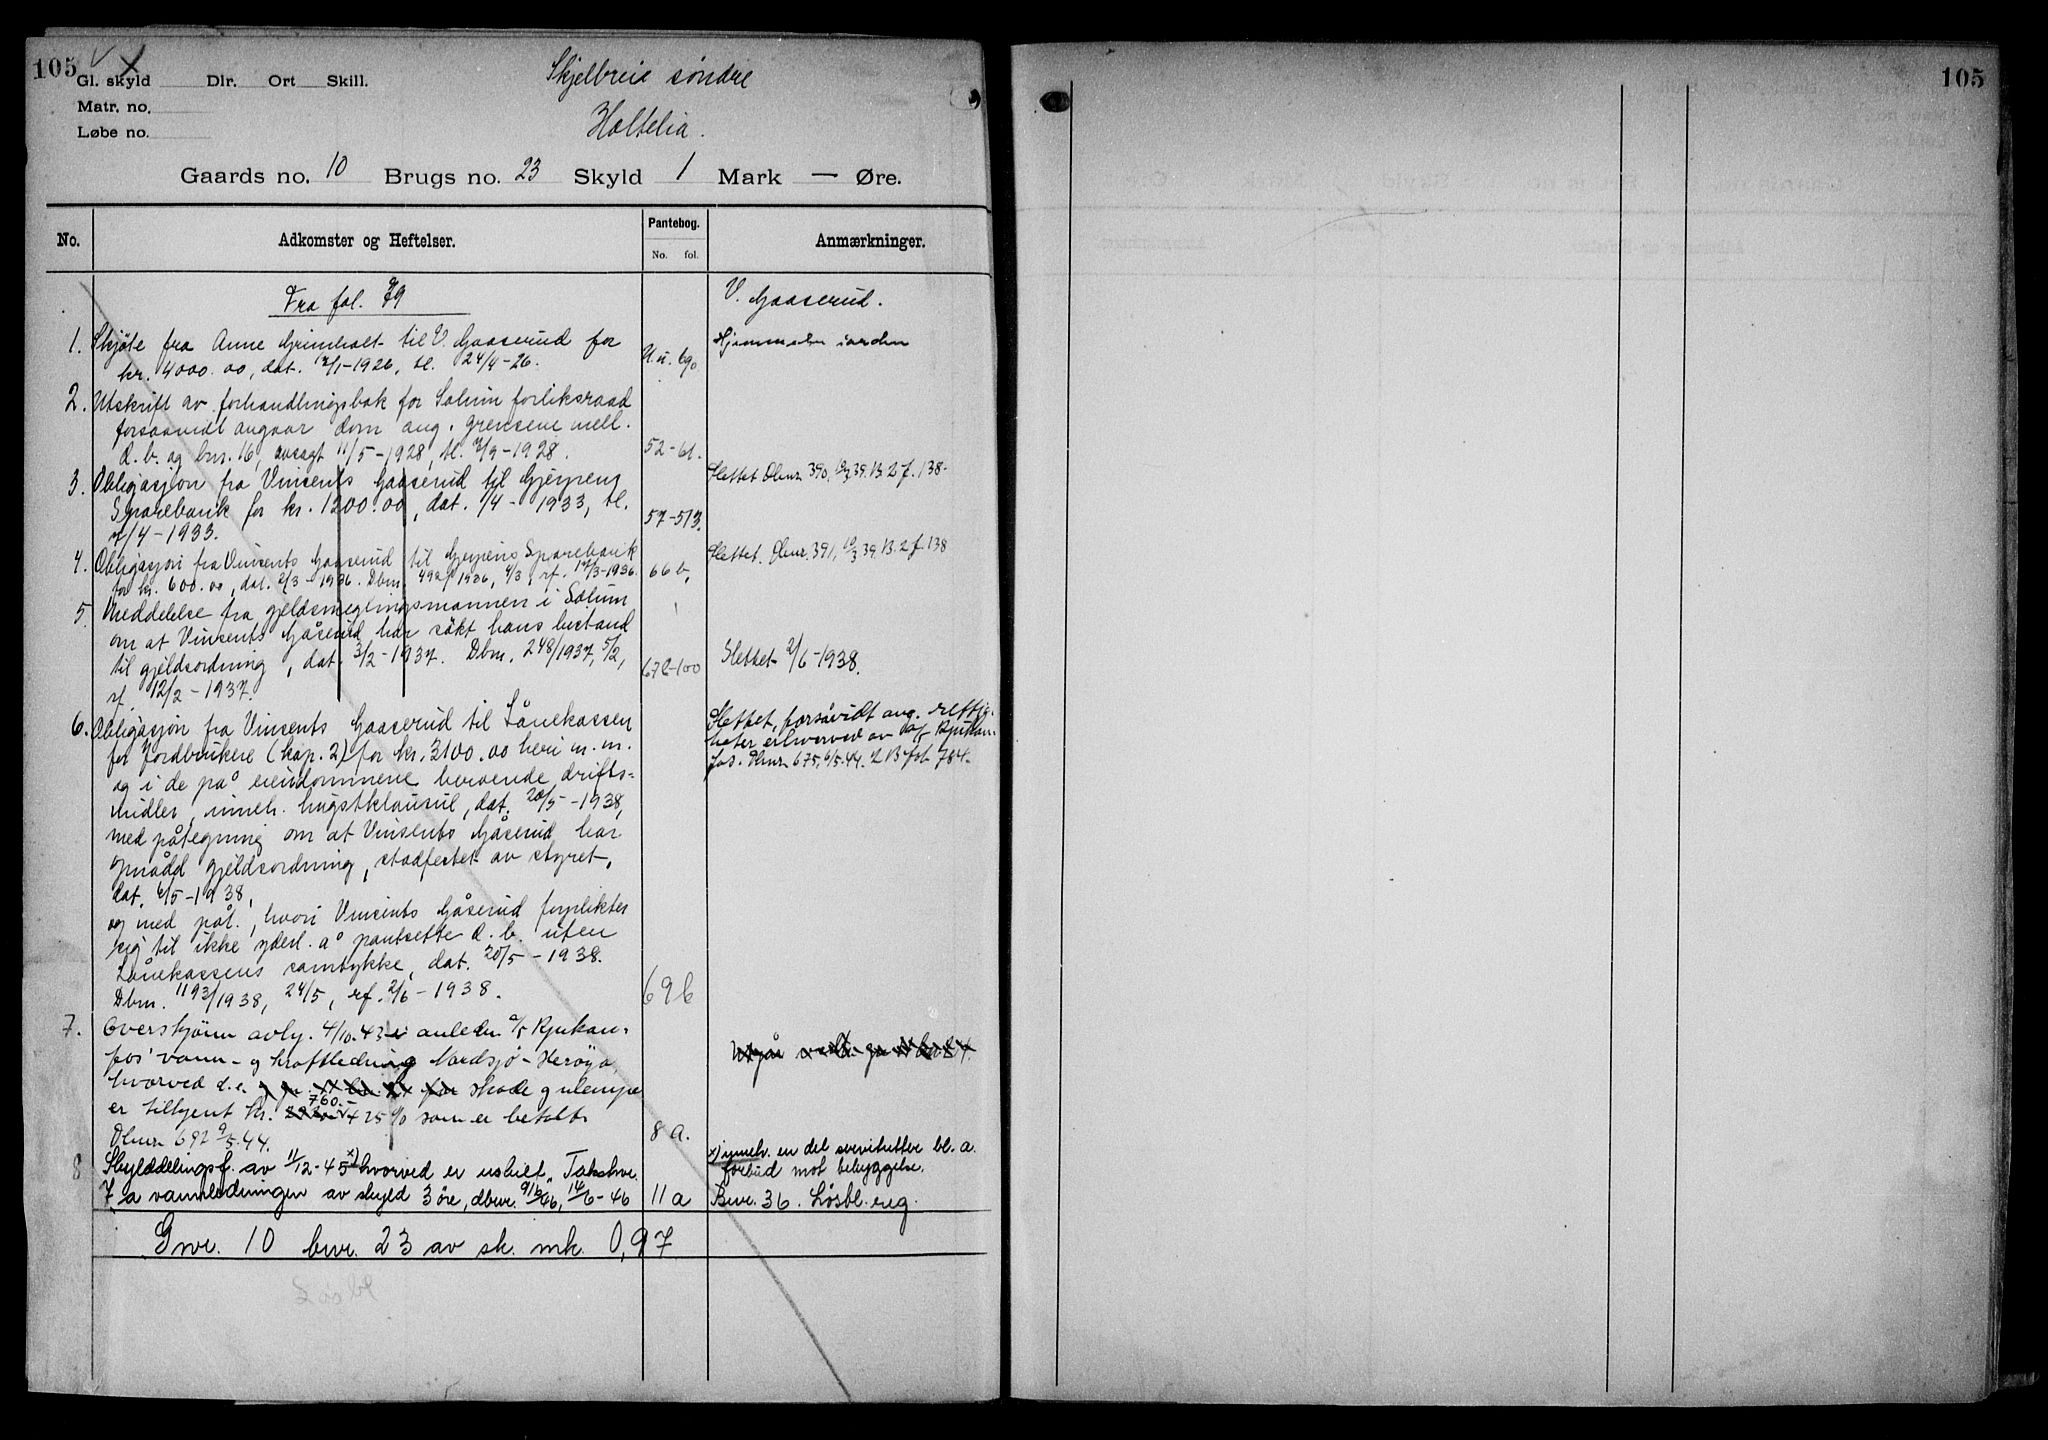 105
105
Gl. skyld Dlr. Ort Skill.
Matr. no.
Løbe no.
Skjelbreid søndre
Holtelia.
Gaards no. 10 Brugs no. 23 Skyld 1 Mark — Øre.
No. Adkomster og Heftelser. Pantebog. Anmærkninger.
No. fol.
Fra fol. 79 V. Gaaserud.
1. Skjøte fra Anne Grimholt til V. Gaaserud for Hjemmelen i orden
kr. 4000.00, dat. /1-1926, tl. 24/4-26. U.u. 690
2. Utskrift av forhandlingsbok for Solum forliksraad
forsaavidt angaar dom ang. grensene mell.
d. b. og bnr. 16, avsagt 11/5-1928, tl. /9-1928. 52-61.
3. Obligasjon fra Vinsents Gaaserud til Gjerpens Slettet Dbnr. 390, 10/3 39. B. 2 f. 138.
Sparebank for kr. 1200.00, dat. 1/4-1933, tl. 57-513.
/4-1933.
4. Obligasjon fra Vinsents Gaaserud til Gjerpens Sparebank Slettet. Dbnr. 391, 10/3 39. B. 2 f. 138
for kr. 600.00, dat. 2/3-1936. Dbnr. 492/1936, 4/3, rf. 17/3-1936. 66b,
5. Meddelelse fra gjeldsmeglingsmannen i Solum
om at Vinsents Gåserud har søkt hans bistand
til gjeldsordning, dat. 3/2-1937. Dbnr. 248/1937, 5/2, 67b-100 Slettet 2/6-1938.
rf. 12/2-1937.
6. Obligasjon fra Vinsents Gaaserud til Lånekassen Slettet, forsåvidt ang. rettig-
for Jordbrukere (kap. 2) for kr. 3100.00 heri m. m. heter erhvervet av A/S Rjukan-
og i de på eiendommene beroende drifts- fos. Dbnr. 675, 6/5.44. 2 B fol. 784.
midler, inneh. hugstklausul, dat. 20/5-1938,
med påtegning om at Vinsents Gåserud har
opnådd gjeldsordning, stadfestet av styret,
dat. 6/5-1938,
og med påt., hvori Vinsents Gåserud forplikter
sig til ikke yderl. å pantsette d. b. uten
Lånekassens samtykke, dat. 20/5-1938.
Dbnr. 1193/1938, 24/5, rf. 2/6-1938. 69b
7. Overskjønn avhj. 4/10.43 i anledn. A/S Rjukan-
fos' vann- og kraftledning Nordsjø-Herøya
hvorved d. e. for skade og ulempe
er tilkjent kr. 760.- + 25% som er betalt.
Dbnr. 692 9/5.44. 8 a.
8 Skylddelingsf. av 11/12-45 x) hvorved er utskilt "Takshve. x) inneh. en del servitutter bl. a.
forbud mot bebyggelse.
7, a vannledningen av skyld 3 øre, dbnr. 916/46, 14/6-46 11 a Bnr. 36. Løsbl. reg.
Gnr. 10 bnr. 23 av sk. mk. 0,97
Løsbl